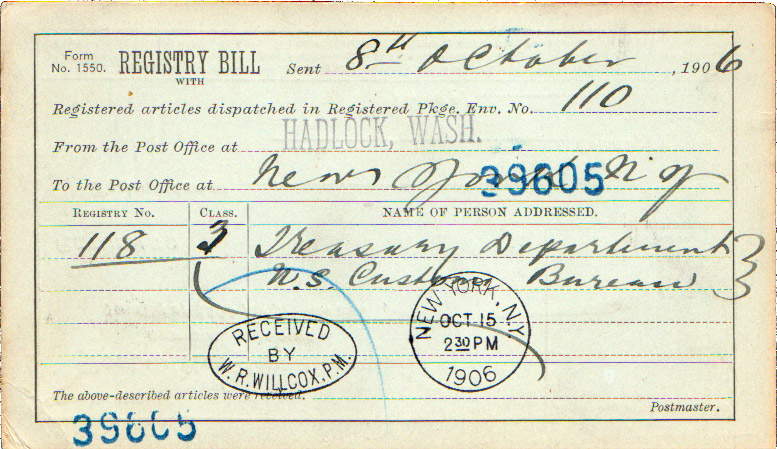 Form
No. 1550. REGISTRY BILL Sent 8th October, 1906
WITH
Registered articles dispatched in Registered Pkge. Env. No. 110
From the Post Office at HADLOCK, WASH.
To the Post Office at New York N y
39605
REGISTRY No. CLASS. NAME OF PERSON ADDRESSED.
118 3 Treasury Department
U.S. Customs Bureau
NEW YORK, N.Y.
OCT 15
2 30 PM
1906
RECEIVED
BY
W. R. WILLCOX, P.M.
The above-described articles were received.
Postmaster.
39605